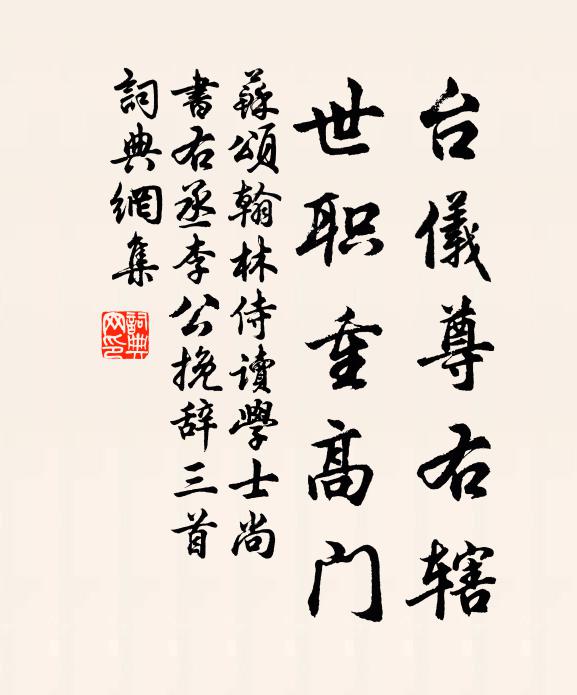 台儀尊右辖
世职重高门
蘇頌翰林侍讀學士尚
書右丞李公挽辞三首
詞典網集
詞典
网印